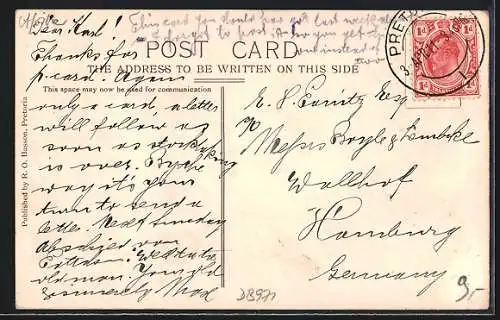 Office
This card you should have got last week but
I forgot to post it. Now you get
two instead of
Dear Karl!
POST CARD
Thanks for
p-card. Again
THE ADDRESS TO BE WRITTEN ON THIS SIDE
This space may now be used for communication
only a card, a letter
will follow as
soon as stocktaking
is over. By the
way it's your
turn to send a
letter. Next Sunday
von
old man. Yours old
Max
Published by R. O. Hasson, Pretoria
PRETORIA
1d 1d
E. K. Esq
c/o
Messrs &
Wallhof
Hamburg
Germany
DB971
9.-